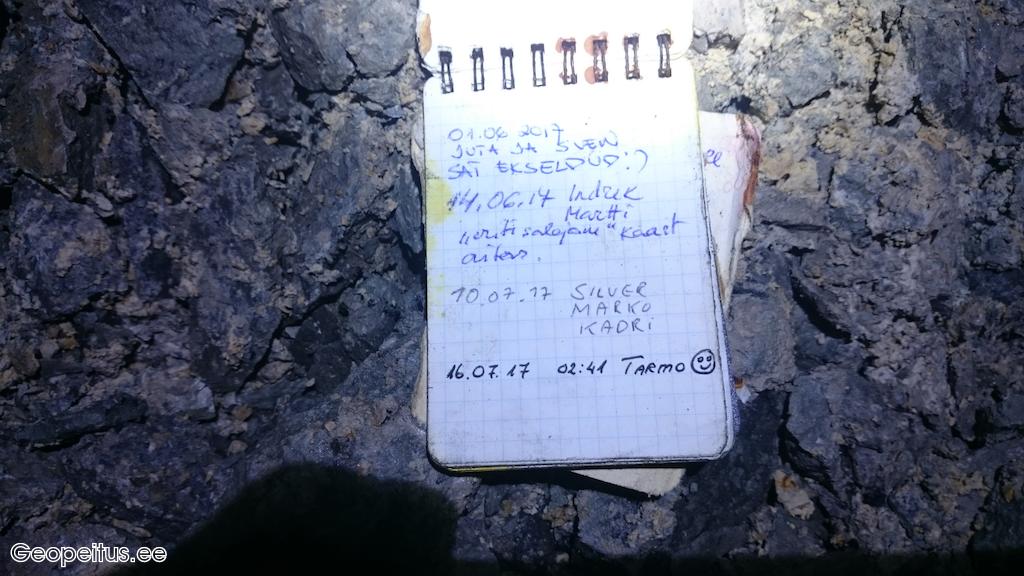 01.06 2017
JUTA JA SVEN
SAT EKSELDUD :)
14.06.17 Indrek
Martti
10.07.17 SILVER
MARKO
KADRI
16.07.17 02:41 TARMO
Geopeitus.ee